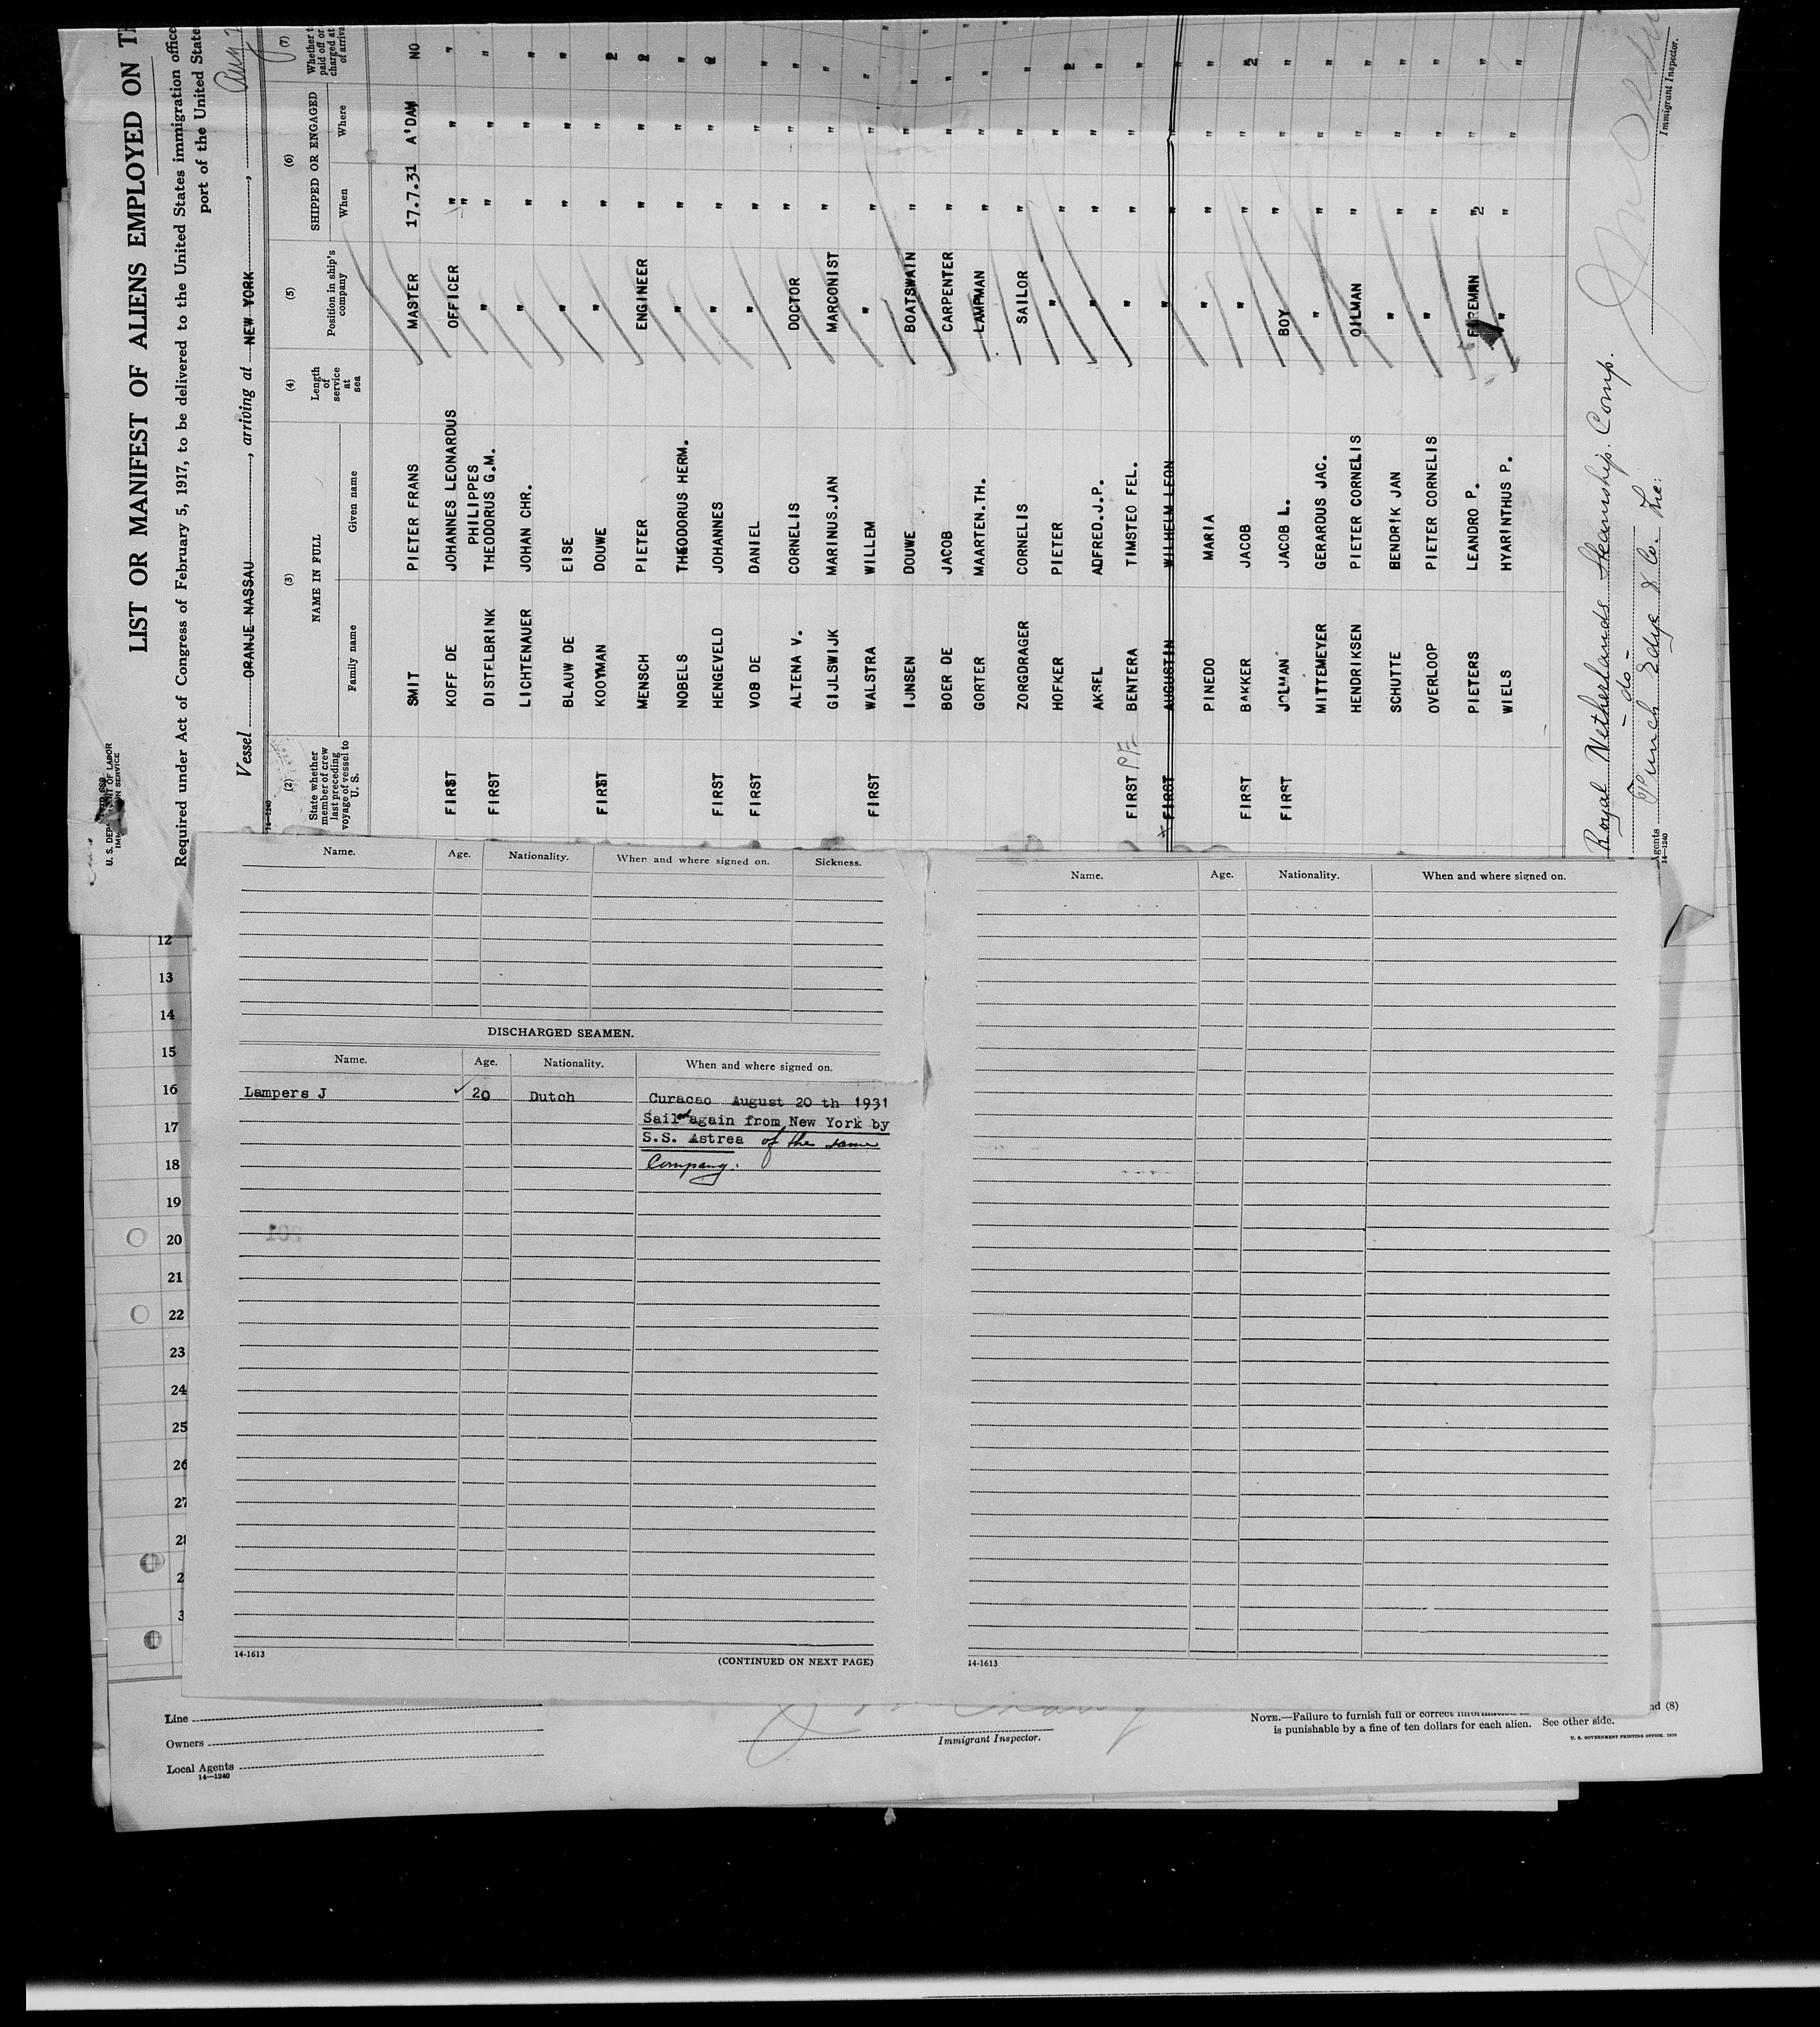 U. S. DEPARTMENT OF LABOR
IMMIGRATION SERVICE
LIST OR MANIFEST OF ALIENS EMPLOYED ON
Required under Act of Congress of February 5, 1917, to be delivered to the United States immigration office
port of the United State
Vessel ORANJE NASSAU, arriving at NEW YORK, Aug
14—1240
(2) (3) (4) (5) (6) (7)
State whether member of crew last preceding voyage of vessel to U. S.
NAME IN FULL
Family name Given name
Length of service at sea
Position in ship's company
SHIPPED OR ENGAGED
When Where
Whether t paid off or charged at of arrival
SMIT PIETER FRANS MASTER 17.7.31 A'DAM NO
FIRST KOFF DE JOHANNES LEONARDUS OFFICER " " "
PHILIPPES "
FIRST DISTELBRINK THEODORUS G.M. " " " "
LICHTENAUER JOHAN CHR. " " " "
BLAUW DE EISE " " " "
FIRST KOOYMAN DOUWE " " "
MENSCH PIETER ENGINEER " "
NOBELS THEODORUS HERM. " " " "
FIRST HENGEVELD JOHANNES " " "
FIRST VOS DE DANIEL " " " "
ALTENA V. CORNELIS DOCTOR " " "
GIJLSWIJK MARINUS.JAN MARCONIST " " "
FIRST WALSTRA WILLEM " " " "
IJNSEN DOUWE BOATSWAIN " " "
BOER DE JACOB CARPENTER " " "
GORTER MAARTEN.TH. LAMPMAN " " "
ZORGDRAGER CORNELIS SAILOR " " "
HOFKER PIETER " " "
AKSEL ADFRED.J.P. " " " "
FIRST BENTERA TIMSTEO FEL. " " " "
FIRST AUGUSTIN WILHELM LEON " " " "
PINEDO MARIA " " " "
FIRST BAKKER JACOB " " "
FIRST JOLMAN JACOB L. BOY " " "
MITTEMEYER GERARDUS JAC. " " " "
HENDRIKSEN PIETER CORNELIS OILMAN " " "
SCHUTTE BENDRIK JAN " " " "
OVERLOOP PIETER CORNELIS " " " "
PIETERS LEANDRO P. FIREMAN " " "
WIELS HYARINTHUS P. " " " "
Royal Netherlands Steamship. Comp.
- do -
Agents Funch Edye & Co. Inc:
14—1240
Immigrant Inspector.
Name. Age. Nationality. When and where signed on. Sickness.
DISCHARGED SEAMEN.
Name. Age. Nationality. When and where signed on.
Lampers J 20 Dutch Curacao August 20 th 1931
Sailed again from New York by
S.S. Astrea of the same
Company.
14-1613
(CONTINUED ON NEXT PAGE)
Name. Age. Nationality. When and where signed on.
14-1613
12
13
14
15
16
17
18
19
20
21
22
23
24
25
26
27
Line
Owners
Local Agents
14—1240
Immigrant Inspector.
nd (8)
NOTE.—Failure to furnish full or correct
is punishable by a fine of ten dollars for each alien. See other side.
U. S. GOVERNMENT PRINTING OFFICE.